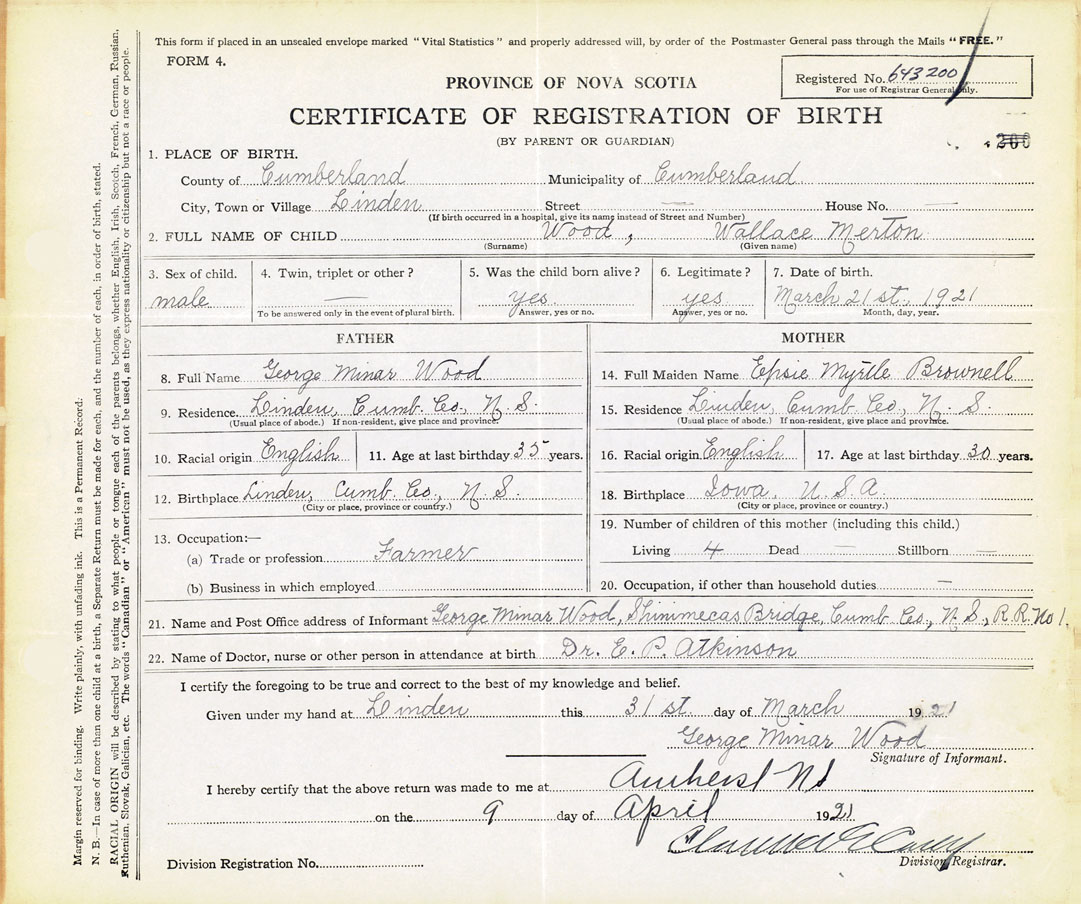 This form if placed in an unsealed envelope marked "Vital Statistics" and properly addressed will, by order of the Postmaster General pass through the Mails "FREE."
FORM 4.
Registered No. 643200
For use of Registrar General only.
PROVINCE OF NOVA SCOTIA
CERTIFICATE OF REGISTRATION OF BIRTH
(BY PARENT OR GUARDIAN)
200
1. PLACE OF BIRTH.
County of Cumberland Municipality of Cumberland
City, Town or Village Linden Street — House No. —
(If birth occurred in a hospital, give its name instead of Street and Number)
2. FULL NAME OF CHILD Wood, Wallace Merton
(Surname) (Given name)
3. Sex of child. 4. Twin, triplet or other? 5. Was the child born alive? 6. Legitimate? 7. Date of birth.
male — yes. yes March 21st, 1921
To be answered only in the event of plural birth. Answer, yes or no. Answer, yes or no. Month, day, year.
FATHER
8. Full Name George Minar Wood
9. Residence. Linden, Cumb. Co., N. S.
(Usual place of abode.) If non-resident, give place and province.
10. Racial origin English 11. Age at last birthday 35 years.
12. Birthplace Linden, Cumb. Co., N. S.
(City or place, province or country.)
13. Occupation:—
(a) Trade or profession Farmer
(b) Business in which employed
MOTHER
14. Full Maiden Name Epsie Myrtle Brownell
15. Residence Linden, Cumb. Co., N. S.
(Usual place of abode.) If non-resident, give place and province.
16. Racial origin English 17. Age at last birthday 30 years.
18. Birthplace Iowa, U. S. A.
(City or place, province or country.)
19. Number of children of this mother (including this child.)
Living 4 Dead — Stillborn —
20. Occupation, if other than household duties —
21. Name and Post Office address of Informant George Minar Wood, Shinimecas Bridge, Cumb Co., N. S., R. R. No 1.
22. Name of Doctor, nurse or other person in attendance at birth Dr. E. P. Atkinson
I certify the foregoing to be true and correct to the best of my knowledge and belief.
Given under my hand at Linden this 31st. day of March 1921
George Minar Wood
Signature of Informant.
I hereby certify that the above return was made to me at Amherst NS
on the 9 day of April 1921
Division Registrar.
Division Registration No.
Margin reserved for binding. Write plainly, with unfading ink. This is a Permanent Record.
N. B.—In case of more than one child at a birth, a Separate Return must be made for each, and the number of each, in order of birth, stated.
RACIAL ORIGIN will be described by stating to what people or tongue each of the parents belongs, whether English, Irish, Scotch, French, German, Russian,
Ruthenian, Slovak, Galician, etc. The words "Canadian" or "American" must not be used, as they express nationality or citizenship but not a race or people.